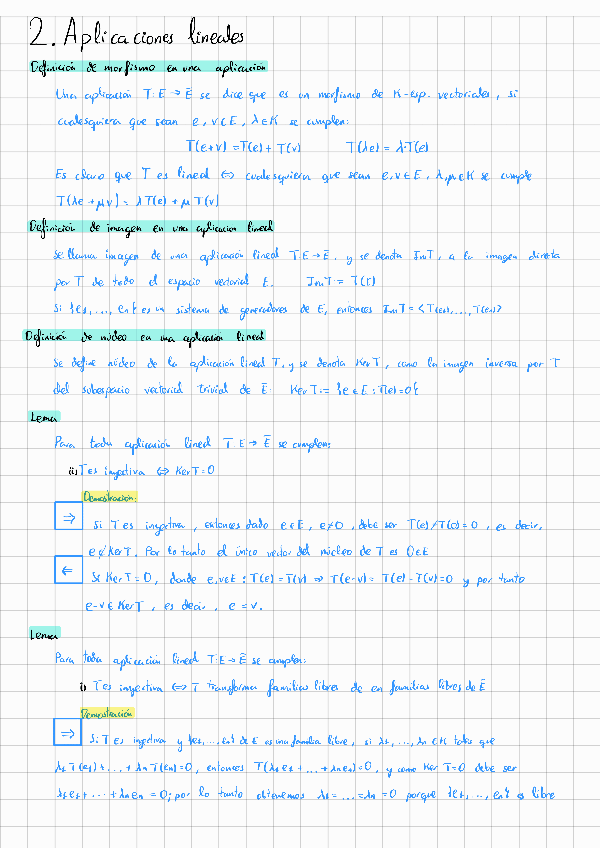 2. Aplicaciones lineales
Definición de morfismo en una aplicación
Una aplicación T: E → Ē se dice que es un morfismo de K-esp. vectoriales, si
cualesquiera que sean e, v ∈ E, λ ∈ K se cumplen:
T(e+v) = T(e) + T(v) T(λe) = λ·T(e)
Es claro que T es lineal ⇔ cualesquiera que sean e, v ∈ E, λ, μ ∈ K se cumple
T(λe + μv) = λT(e) + μT(v)
Definición de imagen en una aplicación lineal
Se llama imagen de una aplicación lineal T: E → Ē, y se denota ImT, a la imagen directa
por T de todo el espacio vectorial E. ImT = T(E)
Si {e₁, ..., en} es un sistema de generadores de E, entonces ImT = <T(e₁), ..., T(en)>
Definición de núcleo en una aplicación lineal
Se define núcleo de la aplicación lineal T, y se denota KerT, como la imagen inversa por T
del subespacio vectorial trivial de Ē: KerT := {e ∈ E : T(e) = 0}
Lema
Para toda aplicación lineal T: E → Ē se cumplen:
ii) T es inyectiva ⇔ KerT = 0
Demostración:
⇒ Si T es inyectiva, entonces dado e ∈ E, e ≠ 0, debe ser T(e) ≠ T(0) = 0, es decir,
e ∉ KerT. Por lo tanto el único vector del núcleo de T es 0 ∈ E
⇐ Si KerT = 0, donde e, v ∈ E : T(e) = T(v) ⇒ T(e-v) = T(e) - T(v) = 0 y por tanto
e-v ∈ KerT, es decir, e = v.
Lema
Para toda aplicación lineal T: E → Ē se cumplen:
i) T es inyectiva ⇔ T transforma familias libres de en familias libres de Ē
Demostración
⇒ Si T es inyectiva y {e₁, ..., en} de E es una familia libre, si λ₁, ..., λn ∈ K tales que
λ₁T(e₁) + ... + λnT(en) = 0, entonces T(λ₁e₁ + ... + λnen) = 0, y como Ker T = 0 debe ser
λ₁e₁ + ... + λnen = 0; por lo tanto obtenemos λ₁ = ... = λn = 0 porque {e₁, ..., en} es libre